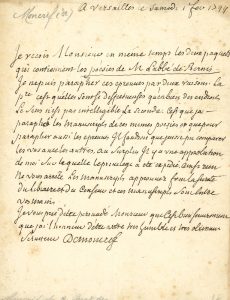 Moncrif (de)
A Versailles ce Samedi 1er fev. 1744
Je recois Monsieur en meme temps les deux paquets
qui contiennent les poesies de M. l'abbé de Bernis
Je ne puis parapher ces epreuves par deux raisons. la
1ere est qu'elles sont si deffectueuses qu'en bien des endroits
le sens n'est pas intelligible la seconde est que j'ai
paraphé les manuscripts de ces mêmes poesies et que pour
parapher aussi les epreuves il faudroit que j'eusse pu comparer
les unes aux autres, au surplus il y a une approbation
de moi sur laquelle le privilege a été expedié, ainsi rien
ne les arrete. les manuscripts approuvés font la sureté
du libraire et du Censeur et ces manuscripts sont entre
vos mains
Je vous prie d'etre persuadé Monsieur que c'est bien sincerement
que j'ai l'honneur d'etre votre tres humble et tres obeissant
serviteur Demoncrif